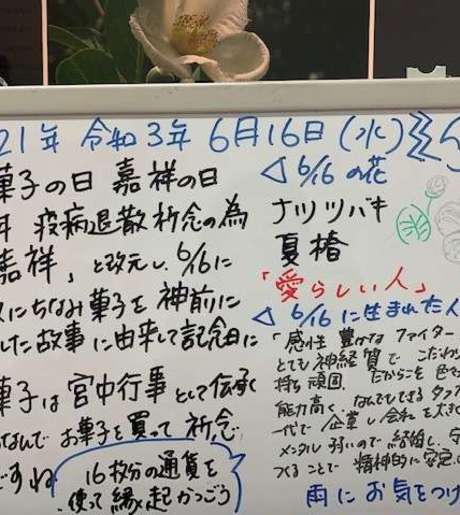 21年 令和3年 6月16日(水)
菓子の日 嘉祥の日
疫病退散祈念の為
嘉祥」と改元し、6/16に
にちなみ菓子を神前に
した故事に由来して記念日に
菓子は宮中行事として伝承
なんで お菓子を買って 祈念で
ですね
16枚分の通貨を
使って縁起かつごう
6/16の花
ナツツバキ
夏椿
「愛らしい人」
6/16に生まれた人
「感性豊かな ファイター
とても神経質で こだわり
持ち頑固. だからこそ
能力高く、なんでもできるタフ
一代で 企業し 会社を大きく
メンタル弱いので 結婚し、
つくることで 精神的に安定
雨に お気をつけ